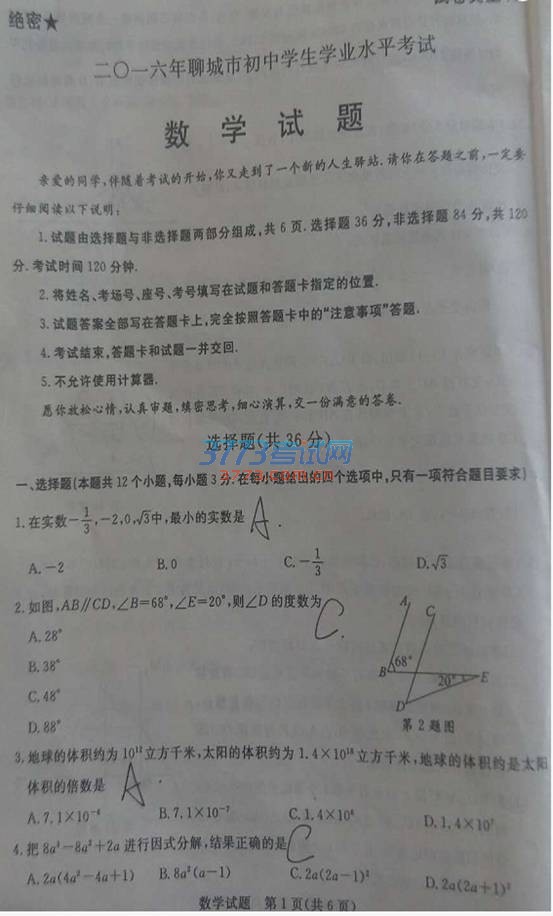 绝密★
二〇一六年聊城市初中学生学业水平考试
数 学 试 题
亲爱的同学,伴随着考试的开始,你又走到了一个新的人生驿站.请你在答题之前,一定要
仔细阅读以下说明:
1.试题由选择题与非选择题两部分组成,共 6 页.选择题 36 分,非选择题 84 分,共 120
分.考试时间 120 分钟.
2.将姓名、考场号、座号、考号填写在试题和答题卡指定的位置.
3.试题答案全部写在答题卡上,完全按照答题卡中的“注意事项”答题.
4.考试结束,答题卡和试题一并交回.
5.不允许使用计算器.
愿你放松心情,认真审题,缜密思考,细心演算,交一份满意的答卷.
选择题(共 36 分)
3773考试网
一、选择题(本题共 12 个小题,每小题 3 分.在每小题给出的四个选项中,只有一项符合题目要求)
1.在实数-1/3,-2,0,√3中,最小的实数是 A.
A.-2 B.0 C.-1/3 D.√3
2.如图,AB∥CD,∠B=68°,∠E=20°,则∠D 的度数为 C.
A.28°
B.38°
C.48°
D.88°
A C
B 68° 20° E
D
第 2 题图
3.地球的体积约为 10¹²立方千米,太阳的体积约为 1.4×10¹⁸立方千米,地球的体积约是太阳
体积的倍数是 A.
A.7.1×10⁻⁶ B.7.1×10⁻⁷ C.1.4×10⁶ D.1.4×10⁷
4.把 8a³-8a²+2a 进行因式分解,结果正确的是 C
A.2a(4a²-4a+1) B.8a²(a-1) C.2a(2a-1)² D.2a(2a+1)²
数学试题 第 1 页(共 6 页)